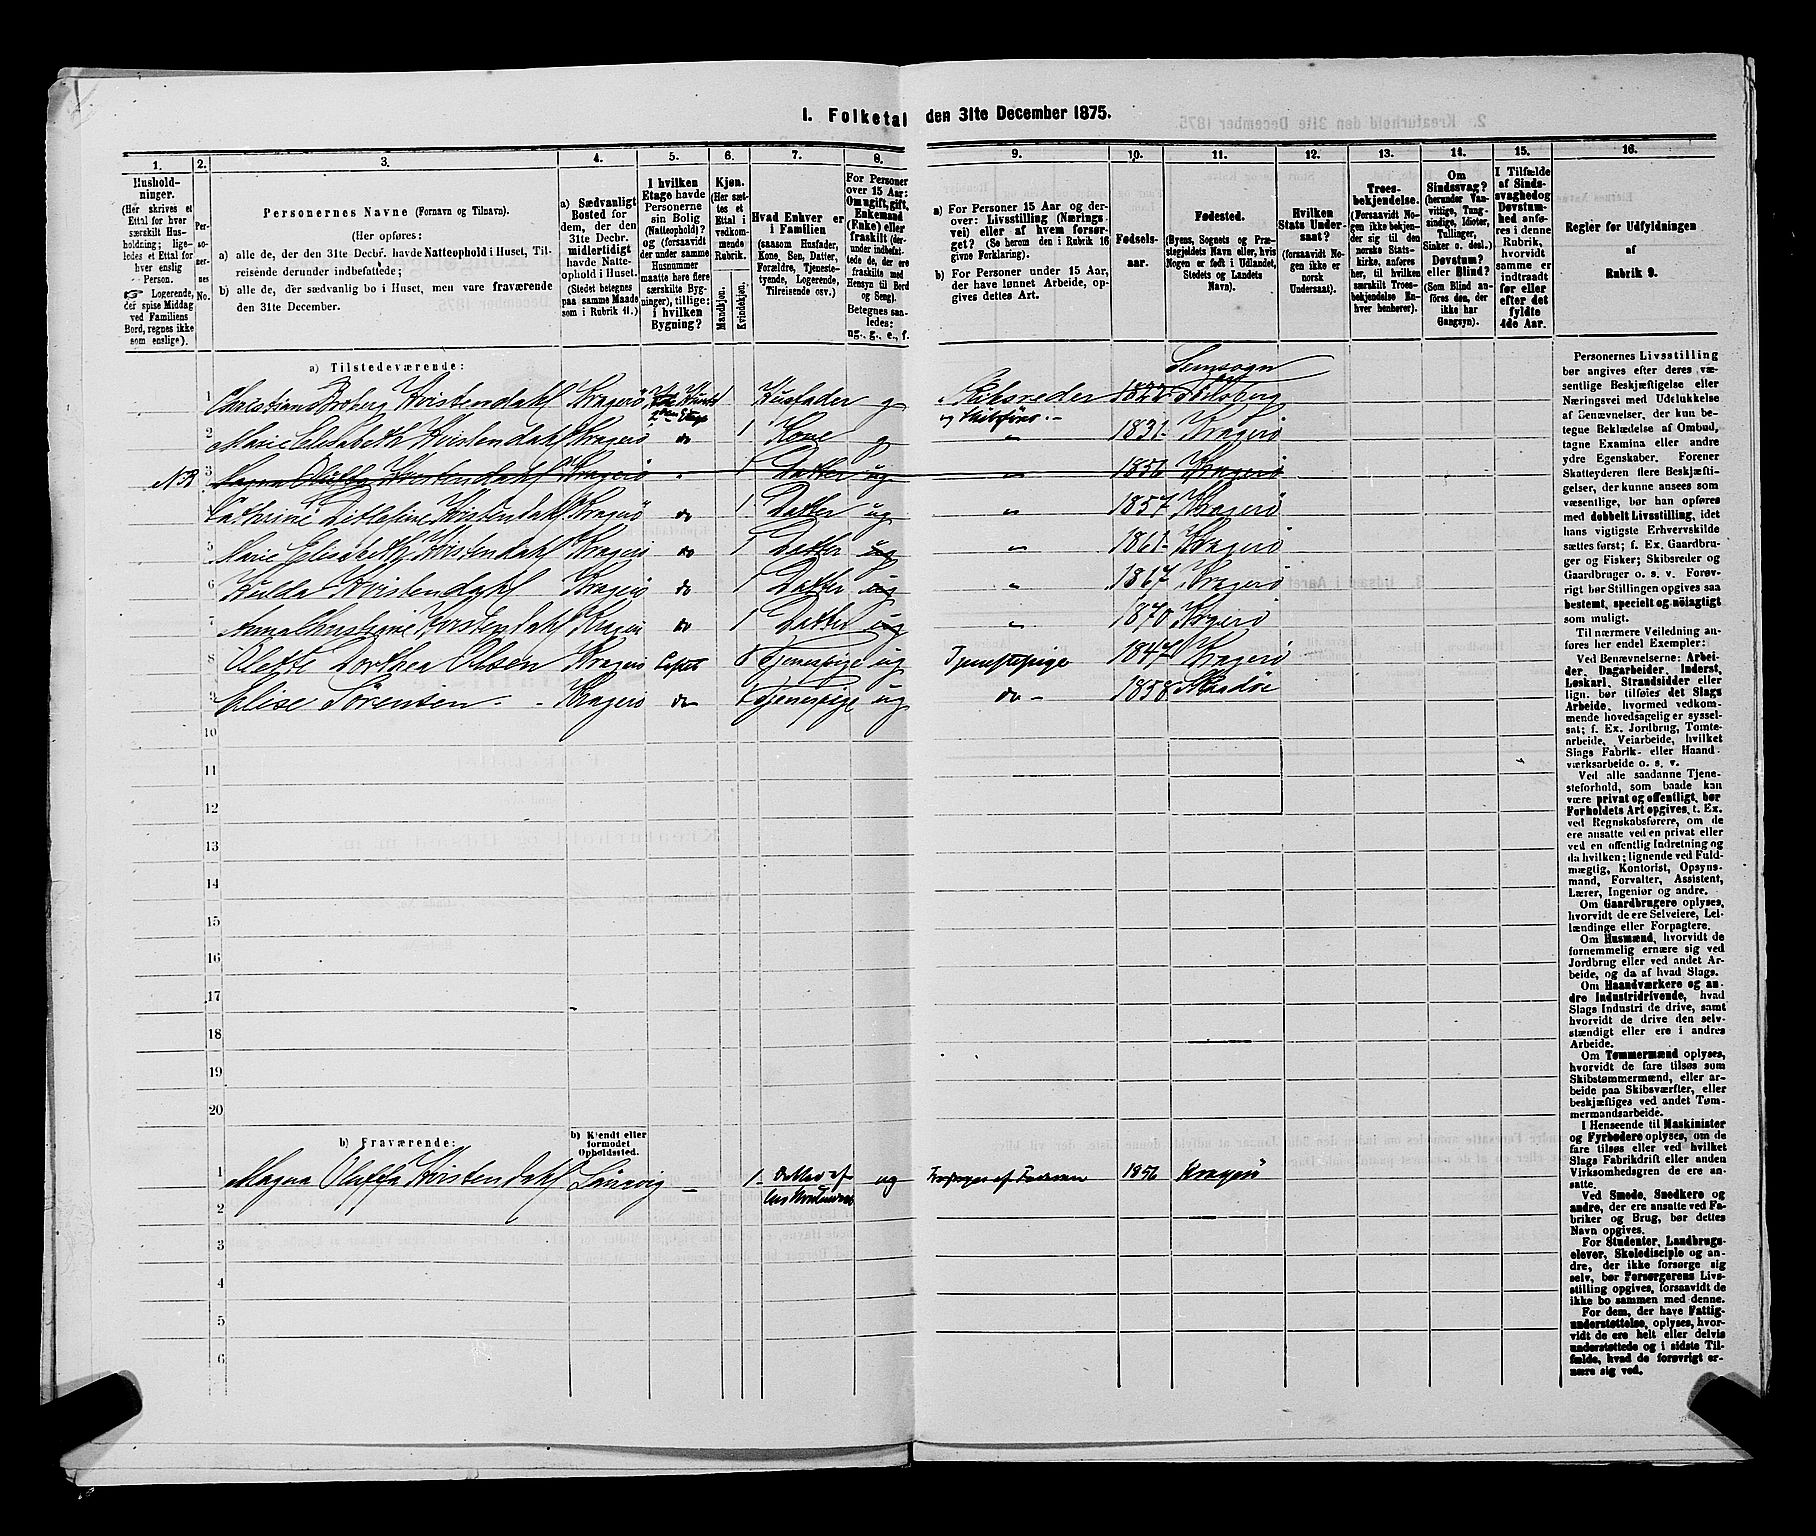 I. Folketal den 31te December 1875.
1. 2. 3. 4. 5. 6. 7. 8. 9. 10. 11. 12. 13. 14. 15. 16.
Husholdninger.
(Her skrives et
Ettal for hver
særskilt Husholdning;
ligeledes et Ettal for
hver enslig
Person.
☞ Logerende,
der spise Middag
ved Familiens
Bord, regnes ikke
som enslige).
Personernes No.
Personernes Navne (Fornavn og Tilnavn).
(Her opføres:
a) alle de, der den 31te Decbr. havde Natteophold i Huset, Tilreisende derunder indbefattede;
b) alle de, der sædvanlig bo i Huset, men vare fraværende
den 31te December.
a) Sædvanligt
Bosted for
dem, der den
31te Decbr.
midlertidigt
havde Natteophold i Huset.
(Stedet betegnes
paa samme Maade
som i Rubrik 11.)
I hvilken
Etage havde
Personerne
sin Bolig
(Natteophold)?
og (forsaavidt
der under samme
Husnummer
maatte høre flere
særskilte Bygninger), tillige:
i hvilken
Bygning?
Kjøn.
(Her sættes et
Ettal i
vedkommende
Rubrik.
Mandkjøn.
Kvindekjøn.
Hvad Enhver er
i Familien
(saasom Husfader,
Kone, Søn, Datter,
Forældre, Tjenestetyende, Logerende,
Tilreisende osv.)
For Personer
over 15 Aar:
Om ugift, gift,
Enkemand
(Enke) eller
fraskilt (derunder indbefattede de, der ere
fraskilte med
Hensyn til Bord
og Seng).
Betegnes saaledes:
ug., g., e., f.
a) For Personer 15 Aar og derover: Livsstilling (Næringsvei) eller af hvem forsørget? (Se herom den i Rubrik 16
givne Forklaring).
b) For Personer under 15 Aar,
der have lønnet Arbeide, opgives dettes Art.
Fødselsaar.
Fødested.
(Byens, Sognets og Præstegjeldets Navn eller, hvis
Nogen er født i Udlandet,
Stedets og Landets
Navn).
Hvilken
Stats Undersaat?
(forsaavidt Nogen ikke er
norsk
Undersaat).
Troesbekjendelse.
(Forsaavidt Nogen ikke bekjender sig til den
norske Statskirke, anføres
her, til hvilken
særskilt Troesbekjendelse Enhver henhører).
Om
Sindssvag?
(herunder Vanvittige, Tungsindige, Idioter,
Tullinger,
Sinker o. desl.)
Døvstum?
eller Blind?
(Som Blind anføres den, der
ikke har
Gangsyn).
I Tilfælde
af Sindssvaghed og
Døvstumhed anføres i denne
Rubrik,
hvorvidt
samme er
indtraadt
før eller
efter det
fyldte
4de Aar.
Regler for Udfyldningen
af
Rubrik 9.
a) Tilstedeværende:
1 Christian Broberg Kvistendahl Kragerø Husfader g Skibsreder 1822 Semsogn
og Skibsfører.
2 Marie Elisabeth Kvistendahl Kragerø do 1 Kone g " 1831 Kragerø
NB 3 Magna Oluffa Kvistendahl Kragerø " 1 Datter ug " 1856 Kragerø
4 Cathrine Ditlefine Kvistendahl Kragerø do 1 Datter ug " 1857 Kragerø
5 Marie Elisabeth Kvistendahl Kragerø do 1 Datter ug " 1861 Kragerø
6 Hulda Kvistendahl Kragerø do 1 Datter ug " 1867 Kragerø
7 Anna Christine Kvistendahl Kragerø do 1 Datter ug " 1870 Kragerø
8 Olette Dorthea Olsen Kragerø Loftet 1 Tjenespige ug Tjenestepige 1847 Kragerø
9 Elise Sørensen Kragerø do 1 Tjenespige ug do 1858 Skaadøe
10
11
12
13
14
15
16
17
18
19
20
b) Fraværende:
b) Kjendt eller
formodet
Opholdssted.
1 Magna Oluffa Kvistendahl Laurvig – 1 Datter af ug Forsørges af Faderen 1856 Kragerø
2
3
4
5
6
Personernes Livsstilling
bør angives efter deres væsentlige Beskjæftigelse eller
Næringsvei med Udelukkelse
af Benævnelser, der kun betegne Beklædelse af Ombud,
tagne Examina eller andre
ydre Egenskaber. Forener
Skatteyderen flere Beskjæftigelser, der kunne ansees som
væsentlige, bør han opføres
med dobbelt Livsstilling, idet
hans vigtigste Erhvervskilde
sættes først; f. Ex. Gaardbruger og Fisker; Skibsreder og
Gaardbruger o. s. v. Forøvrigt bør Stillingen opgives saa
bestemt, specielt og nöiagtigt
som muligt.
Til nærmere Veiledning anføres her endel Exempler:
Ved Benævnelserne: Arbeider, Dagarbeider, Inderst,
Løskarl, Strandsidder eller
lign. bør tilføies det Slags
Arbeide, hvormed vedkommende hovedsagelig er sysselsat; f. Ex. Jordbrug, Tomtearbeide, Veiarbeide, hvilket
Slags Fabrik- eller Haandværksarbeide o. s. v.
Ved alle saadanne Tjenesteforhold, som baade kan
være privat og offentligt, bør
Forholdets Art opgives, t. Ex.
ved Regnskabsførere, om de
ere ansatte ved en privat eller
ved en offentlig Indretning og
da hvilken; lignende ved Fuldmægtig, Kontorist, Opsynsmand, Forvalter, Assistent,
Lærer, Ingeniør og andre.
Om Gaardbrugere oplyses,
hvorvidt de ere Selveiere, Leilændinge eller Forpagtere.
Om Husmænd, hvorvidt de
fornemmelig ernære sig ved
Jordbrug eller ved andet Arbeide, og da af hvad Slags.
Om Haandværkere og andre Industridrivende, hvad
Slags Industri de drive, samt
hvorvidt de drive den selvstændigt eller ere i andres
Arbeide.
Om Tømmermænd oplyses,
hvorvidt de fare tilsøs som
Skibstømmermænd, eller arbeide paa Skibsværfter, eller
beskjæftiges ved andet Tømmermandsarbeide.
I Henseende til Maskinister
og Fyrbødere oplyses, om de
fare tilsøs eller ved hvilket
Slags Fabrikdrift eller anden
Virksomhedsgren de ere ansatte.
Ved Smede, Snedkere og
andre, der ere ansatte ved Fabriker og Brug, bør dettes
Navn opgives.
For Studenter, Landbrugselever, Skoledisciple og andre, der ikke forsørge sig
selv, bør Forsørgerens Livsstilling opgives, forsaavidt de
ikke bo sammen med denne.
For dem, der have Fattigunderstøttelse, oplyses, hvorvidt de ere helt eller delvis
understøttede og i sidste Tilfælde, hvad de forøvrigt ernære sig ved.